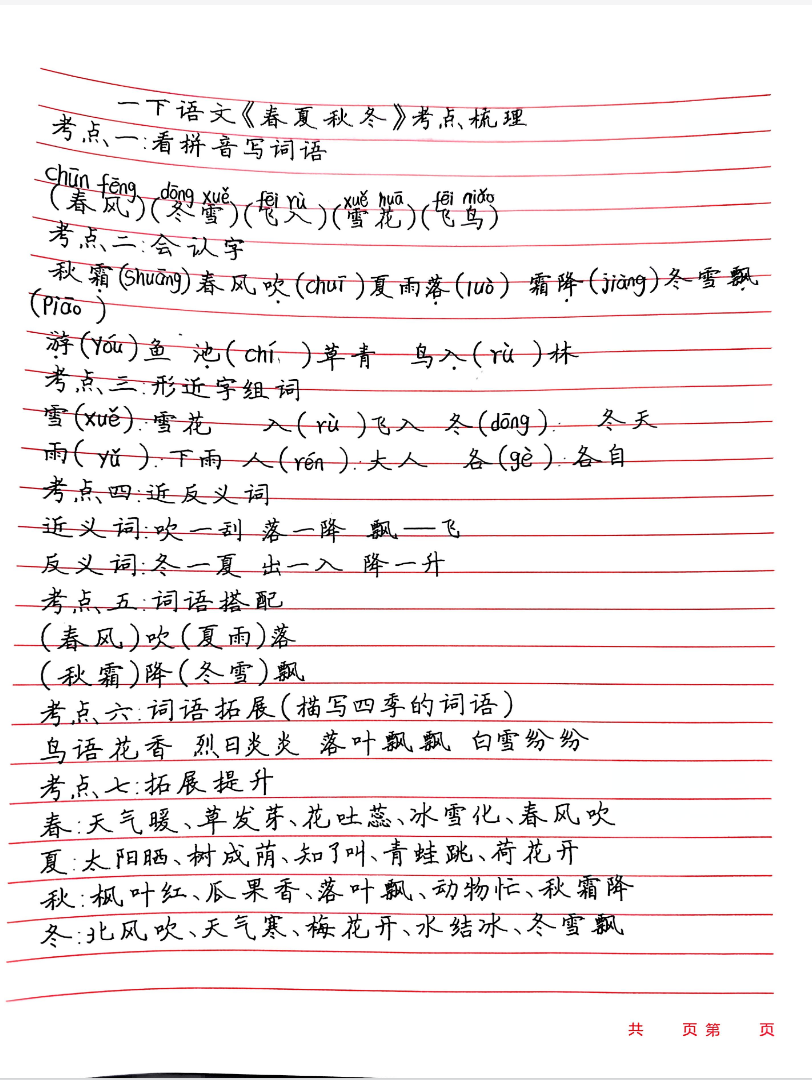 一下语文《春夏秋冬》考点梳理
考点一:看拼音写词语
chūn fēng dōng xuě fēi rù xuě huā fēi niǎo
(春风)(冬雪)(飞入)(雪花)(飞鸟)
考点二:会认字
秋霜(Shuāng)春风吹(chuī)夏雨落(luò) 霜降(jiàng)冬雪飘
(Piāo )
游(yóu)鱼 池(chí )草青 鸟入(rù )林
考点三:形近字组词
雪(xuě):雪花 入(rù )飞入 冬(dōng): 冬天
雨(yǔ ):下雨 人(rén):大人 各(gè):各自
考点四:近反义词
近义词:吹一刮 落一降 飘——飞
反义词:冬一夏 出一入 降一升
考点五:词语搭配
(春风)吹(夏雨)落
(秋霜)降(冬雪)飘
考点六:词语拓展(描写四季的词语)
鸟语花香 烈日炎炎 落叶飘飘 白雪纷纷
考点七:拓展提升
春:天气暖、草发芽、花吐蕊、冰雪化、春风吹
夏:太阳晒、树成荫、知了叫、青蛙跳、荷花开
秋:枫叶红、瓜果香、落叶飘、动物忙、秋霜降
冬:北风吹、天气寒、梅花开、水结冰、冬雪飘
共 页 第 页